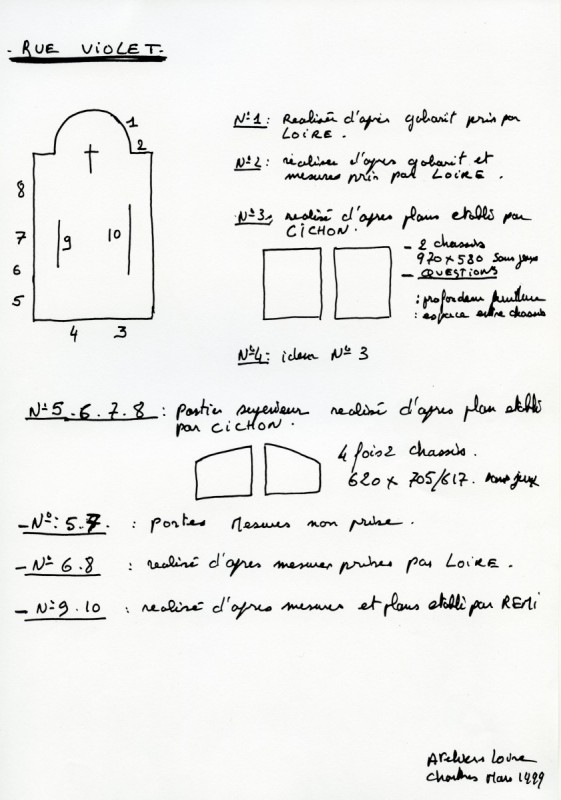 - RUE VIOLET -
1
2
8
7
6
5
9
10
4
3
N°1 : Realisée d'après gabarit pris par
LOIRE .
N°2 : realisée d'apres gabarit et
mesures pris par LOIRE .
N°3 : realisé d'apres plans etabli par
CICHON .
- 2 chassis
970 x 580 sans jeux
- QUESTIONS
: profondeur feuillure
: espace entre chassis
N°4 : idem N° 3
N°5 . 6 . 7 . 8 : Parties superieur realisé d'apres plan etabli
par CICHON .
4 fois 2 chassis .
620 x 705/617 . sans jeux
- N° : 5.7 . : portes Mesures non prise .
- N° 6.8 : realisé d'apres mesures prises par LOIRE .
- N° 9.10 : realisé d'apres mesures et plans etabli par REMI
Ateliers Loire
Chartres Mars 1999